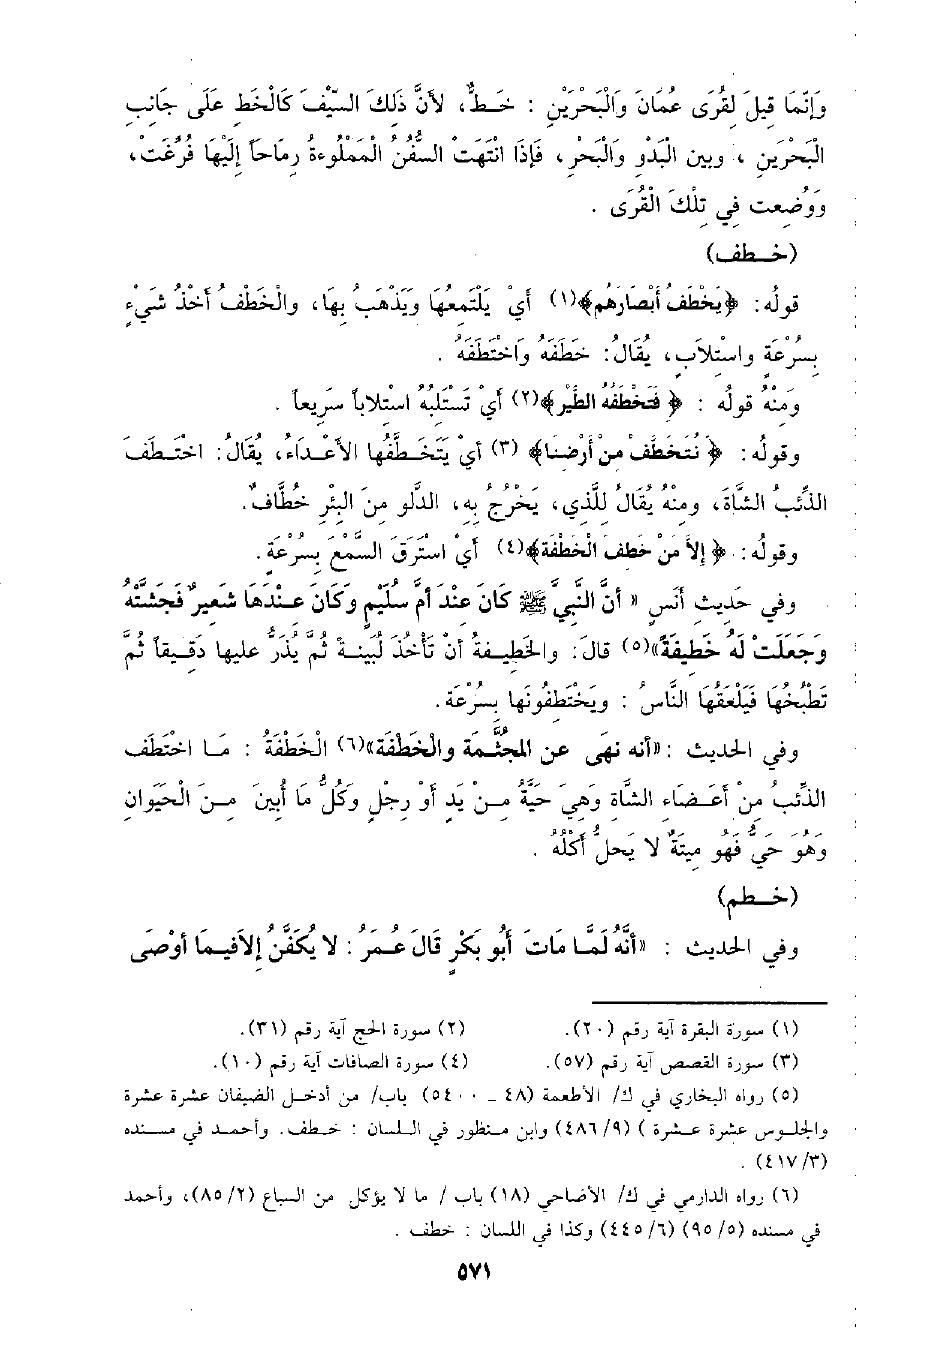 وَإنَّمَا قِيلَ لِقُرَى عُمَانَ وَالْبَحْرَيْنِ : خَـطٌّ، لأنَّ ذَلِكَ السِّيْفَ كَالْخَطِ عَلَى جَانِبِ
الْبَحْرَيْنِ ، وبين الْبَدْوِ والْبَحْرِ ، فَإذَا انْتَهَتْ السُّفُنُ الْمَمْلُوءةُ رِمَاحاً إلَيْهَا فُرِّغَتْ،
وَوُضِعت فِي تِلْكَ الْقُرَى .
(خـطف)
قولُه: ﴿يَخْطَفُ أبْصَارَهُم﴾(١) أيْ يَلْتَمِعُهَا وَيَذْهَبُ بِهَا، والْخَطْفُ أخْذُ شَيْءٍ
بِسُرْعَةٍ واسْتِلاَبٍ، يُقَالُ: خَطَفَهُ وَاخْتَطَفَهُ .
وَمِنْهُ قولُه : ﴿ فَتَخْطَفُهُ الطَّيْر﴾(٢) أيْ تَسْتَلِبُهُ اسْتِلاباً سَرِيعاً .
وقولُه: ﴿ نُتَخَطَّفْ مِنْ أرْضِنَا﴾ (٣) أيْ يَتَخَـطَّفُها الأعْـدَاءُ، يُقَالُ: اخْتَـطَفَ
الذِّئْبُ الشَّاةَ، ومنْهُ يُقَالُ للَّذِي، يَخْرُجُ بِهِ، الدَّلو مِنَ البِئْرِ خُطَّافٌ.
وقولُه: ﴿ إلاَّ مَنْ خَطِفَ الْخَطْفَة﴾(٤) أيْ اسْتَرَقَ السَّمْعَ بِسُرْعَةٍ.
وفي حَدِيثِ أنَسٍ « أنَّ النَّبِيَّ ﷺ كَانَ عِنْدَ أمِّ سُلَيْمٍ وَكَانَ عِـنْدَهَا شَعِيرٌ فَجَشَّتْهُ
وَجَعَلَتْ لَهُ خَطِيفَةً»(٥) قالَ: والْخَطِيـفةُ أنْ تَأْخُذَ لُبَيْنَـةً ثُمَّ يُذَرُّ عليها دَقِـيقاً ثُمَّ
تَطْبُخُهَا فَيَلْعَقُهَا النَّاسُ : ويَخْتَطِفُونَها بِسُرْعَة.
وفي الحديث : «أنه نهَى عن المجُثَّمَة والْخَطْفَة»(٦) الْخَطْفَةُ : مَـا اخْتَطَف
الذِّئبُ مِنْ أعْـضَاءِ الشَّاةِ وَهِيَ حَيَّةٌ مِـنْ يَدٍ أوْ رِجْلٍ وَكُلُّ مَا أُبِينَ مِـنَ الْحَيَوانِ
وَهُوَ حَيٌّ فَهُو مِيتَةٌ لا يَحِلُّ أكْلُهُ .
(خـطم)
وفي الحديث : «أنَّهُ لَمَّـا مَاتَ أبُو بَكْرٍ قَالَ عُـمَرُ : لا يُكَفَّنُ إلاَفِيمَا أوْصَى
(١) سورة البقرة آية رقم (٢٠).
(٢) سورة الحج آية رقم (٣١).
(٣) سورة القصص آية رقم (٥٧).
(٤) سورة الصافات آية رقم (١٠).
(٥) رواه البخاري في ك/ الأطعمة (٤٨ ـ ٥٤٠٠) باب/ من أدخـل الضيفان عشرة عشرة
والجلـوس عشرة عـشرة ) (٤٨٦/٩) وابن مـنظور في اللـسان : خـطف. وأحمـد في مـسنده
(٤١٧/٣) .
(٦) رواه الدارمي في ك/ الأضاحي (١٨) باب / ما لا يؤكل من السباع (٨٥/٢)، وأحمد
في مسنده (٩٥/٥) (٤٤٥/٦) وكذا في اللسان : خطف .
٥٧١